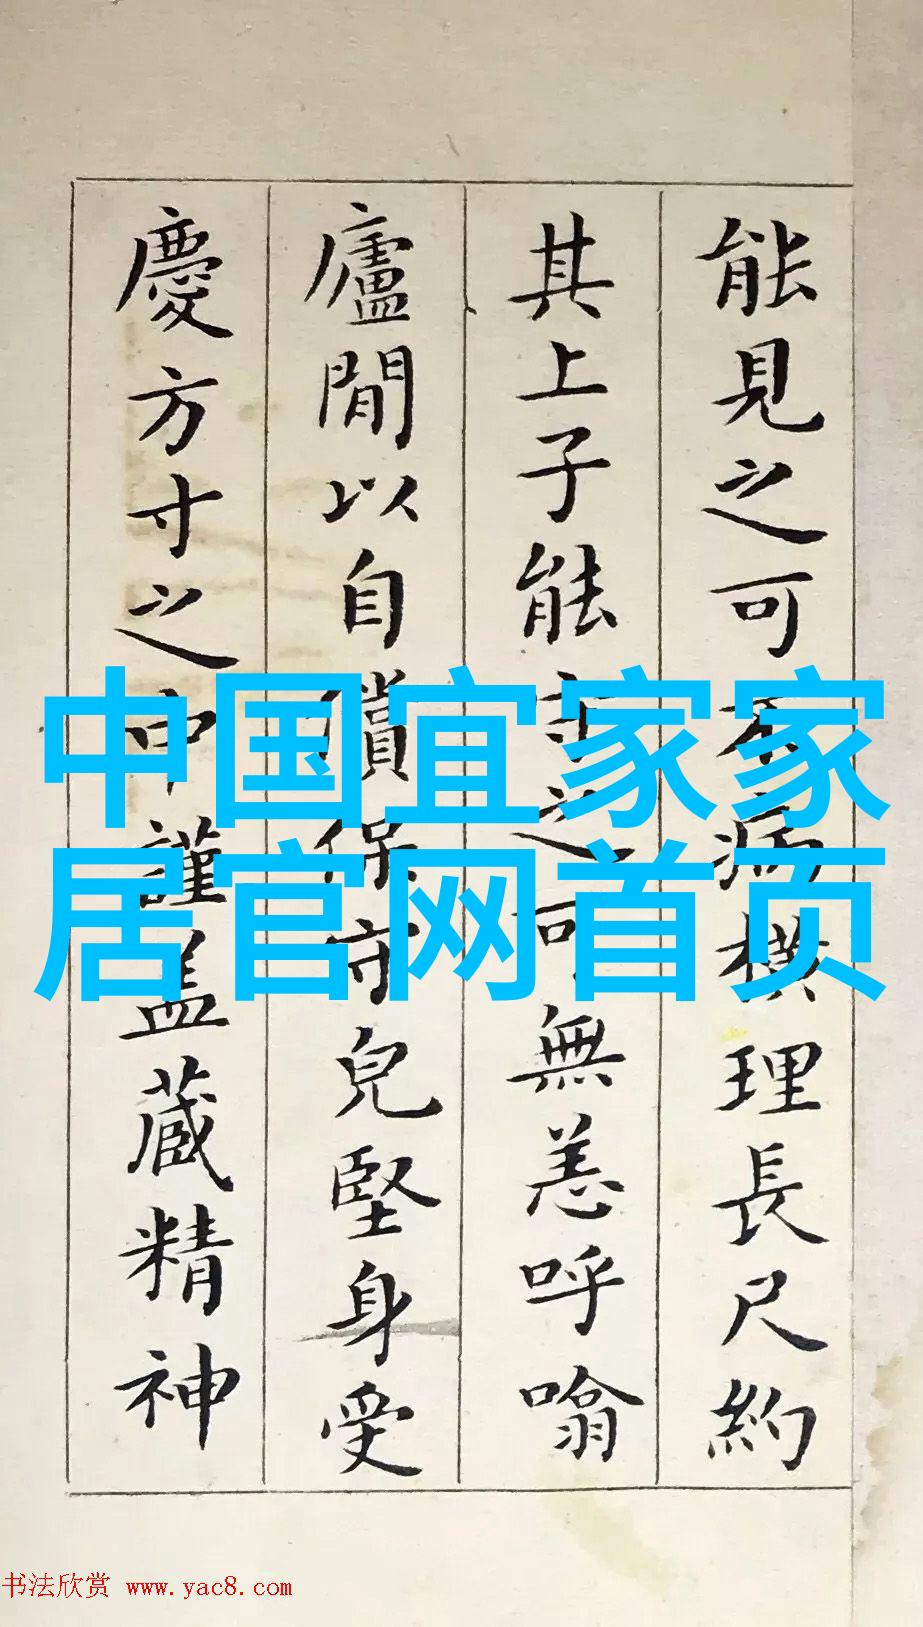 能見之可不病橫理長尺約
其上子能守之可無恙呼噏
廬閒以自償保守兒堅身受
慶方寸之中謹蓋藏精神
中国宜家家
居官网首页
书法欣赏 www.yac8.com